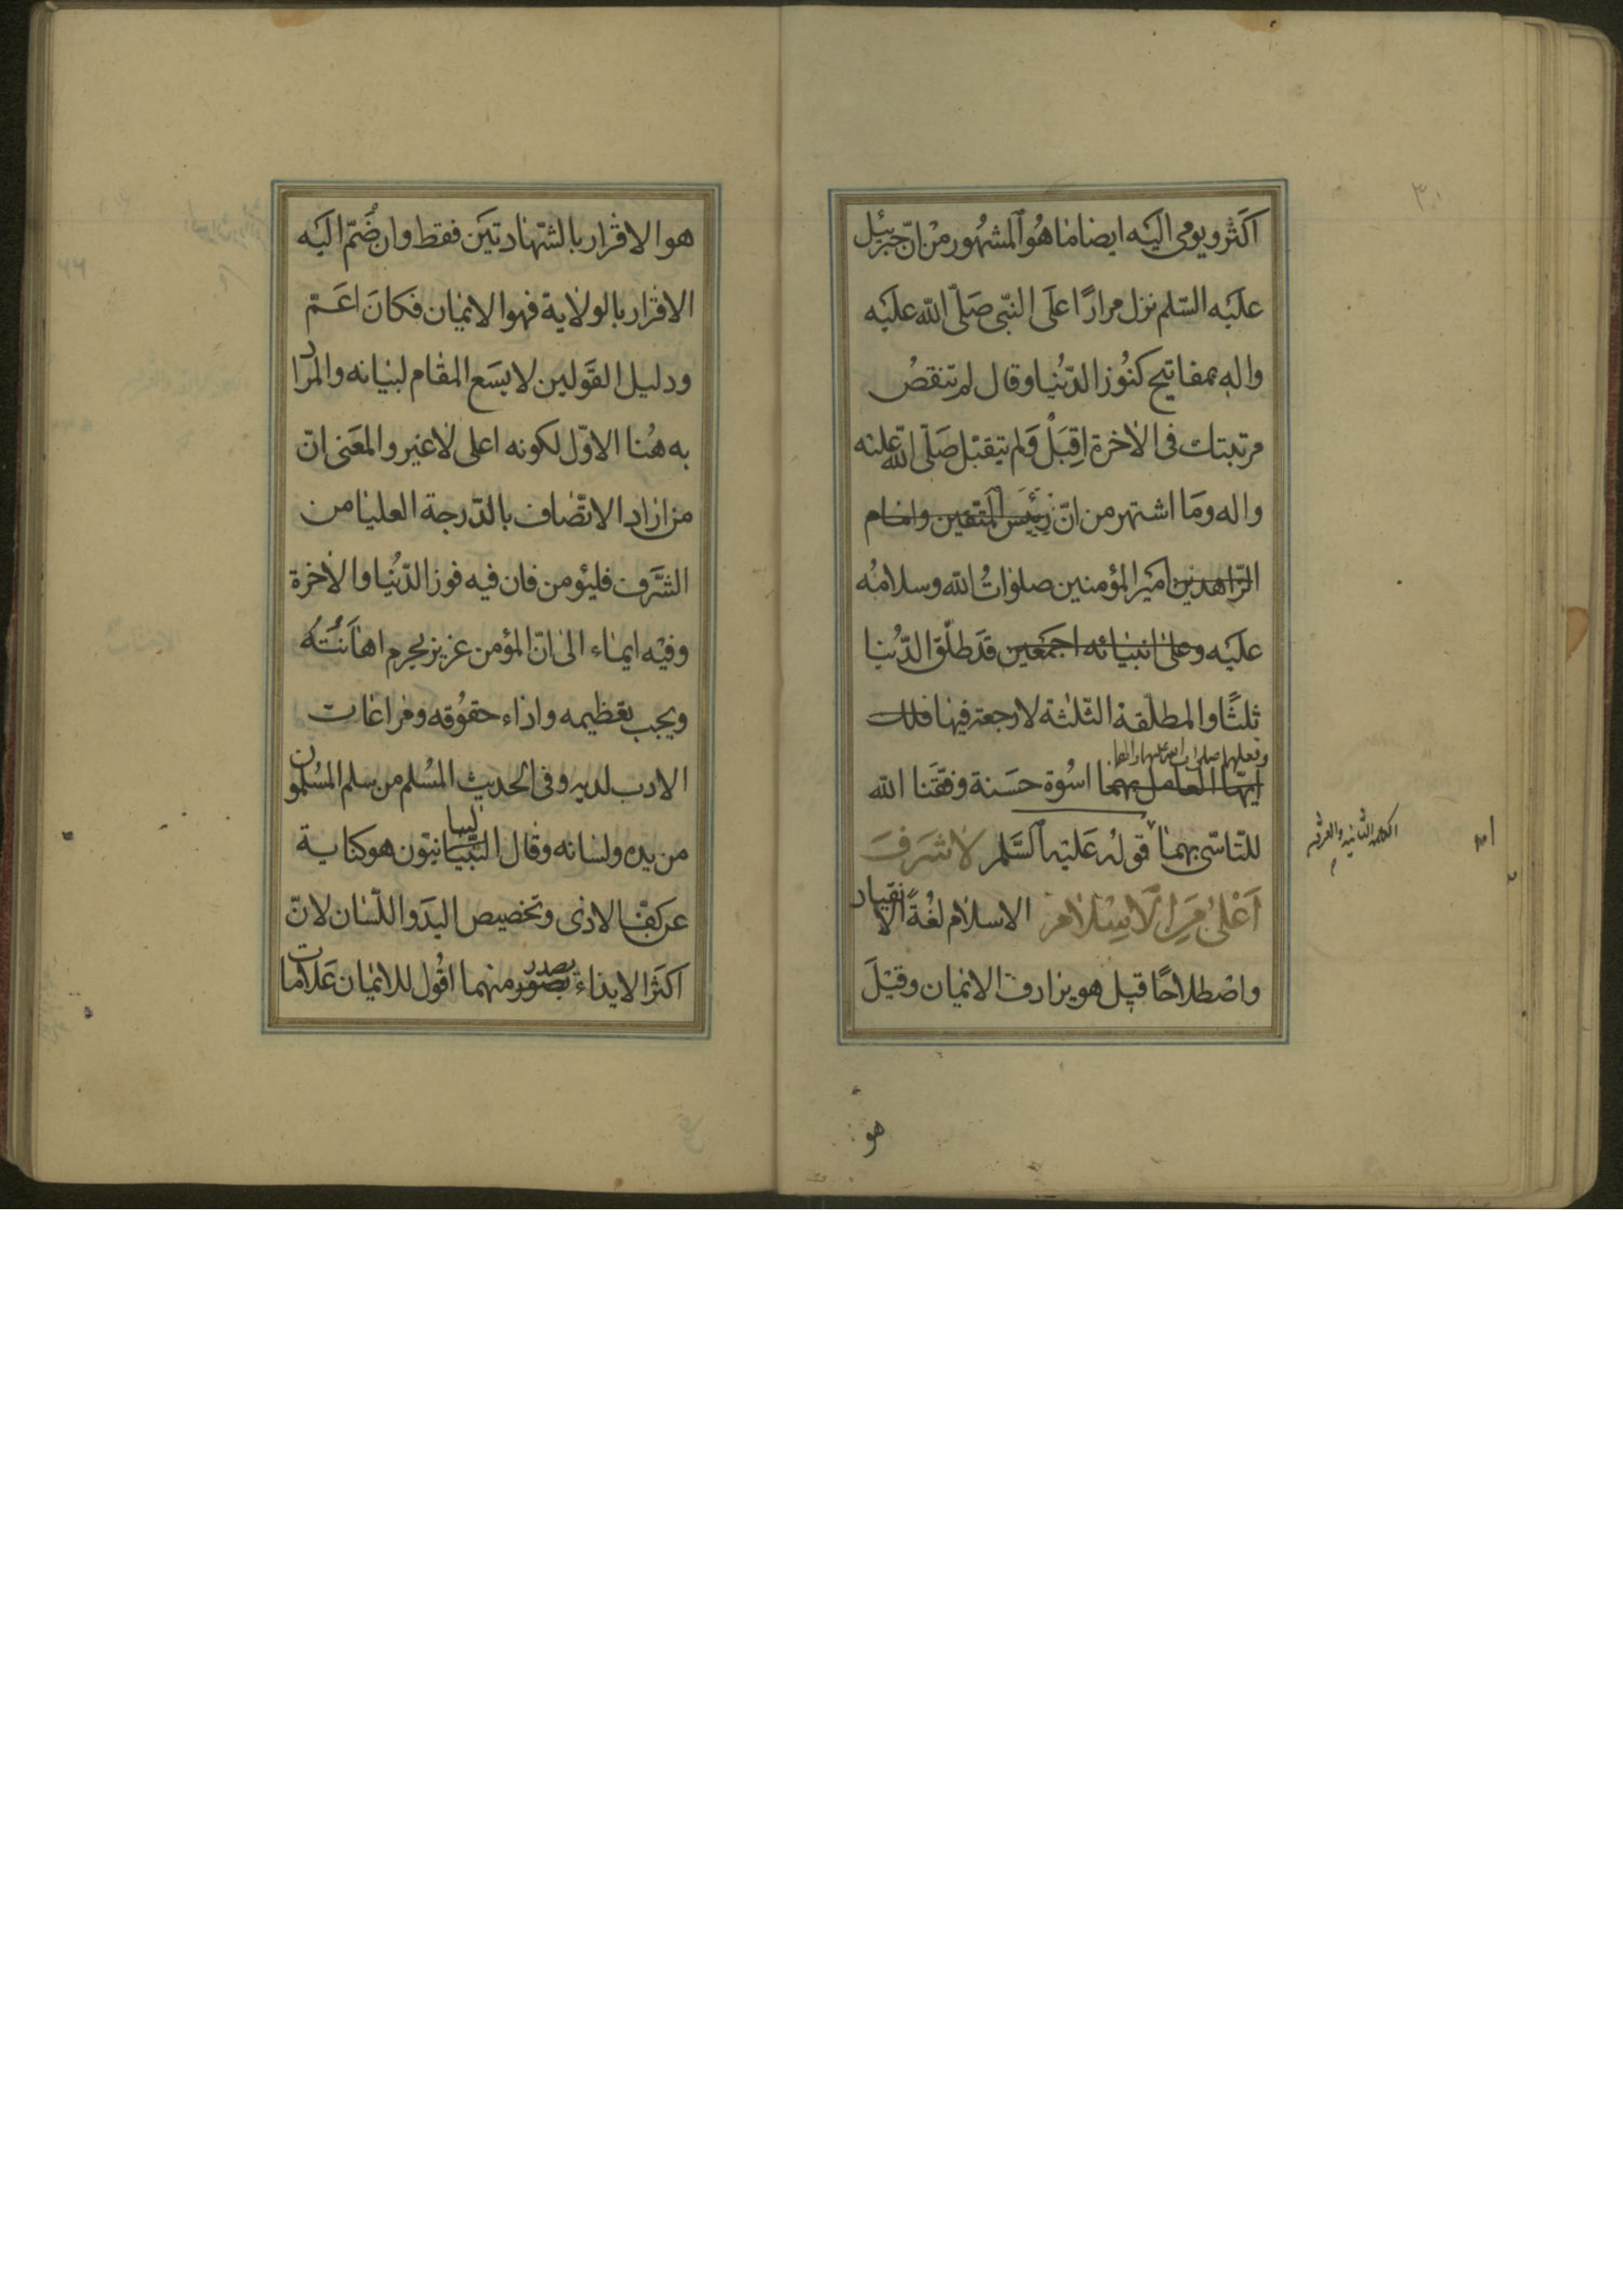 اكثر ويومى اليه ايضا ما هو المشهور من انّ جبرئيل
عليه السّلم نزل مرارًا على النّبى صلّى الله عليه
واله بمفاتيح كنوز الدّنيا وقال لم تنقص
مرتبتك فى الاخرة اقبل ولم يتقبل صلّى الله عليه
واله وما اشتهر من انّ رئيس المتقين وامام
الزّاهدين امير المؤمنين صلوات الله وسلامه
عليه وعلى انبيائه اجمعين قد طلّق الدّنيا
ثلثًا والمطلقة الثلثة لا رجعة فيها فلك
وبعليهما صلوات الله عليهما والهما
ايّها العامل بهما اسوة حسنة وفقنا الله
للتاسّى بهما قوله عليه السّلم لا شرف
اعلى من الاسلام الاسلام لغةً الانقياد
واصطلاحًا قيل هو يرادف الايمان وقيل
الكلمة الثانية والعشر
هو
٣٠
هو الاقرار بالشّهادتين فقط وان ضمّ اليه
الاقرار بالولاية فهو الايمان فكان اعمّ
ودليل القولين لا يسع المقام لبيانه والمراد
به هنا الاوّل لكونه اعلى لا غير والمعنى انّ
من اراد الاتصاف بالدّرجة العليا من
الشّرف فليؤمن فان فيه فوز الدّنيا والاخرة
وفيه ايماء الى انّ المؤمن عزيز يحرم اهانته
ويجب تعظيمه واداء حقوقه ومراعات
الادب لديه وفى الحديث المسلم من سلم المسلمون
من يده ولسانه وقال البيانيّون هو كناية
عن كفّ الاذى وتخصيص اليد واللّسان لانّ
اكثر الايذاء يصدر منهما اقول للايمان علامات